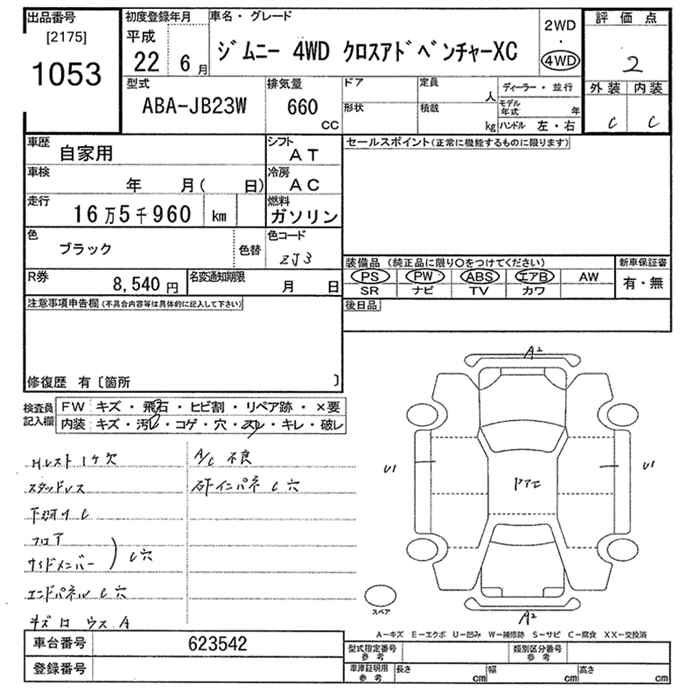 出品番号 [2175] 1053
初度登録年月 平成 22 6月
車名・グレード ジムニー 4WD クロスアドベンチャーXC
2WD・4WD
評価点 2
外装 内装
C C
型式 ABA-JB23W
排気量 660 CC
ドア 定員 人
形状 積載 kg
ディーラー・並行
モデル年式 年
ハンドル 左・右
車歴 自家用
シフト AT
車検 年 月( 日)
冷房 AC
走行 16万5千960 km
燃料 ガソリン
色 ブラック 色替
色コード ZJ3
R券 8,540円
名変通知期限 月 日
セールスポイント(正常に機能するものに限ります)
装備品(純正品に限り○をつけてください)
PS PW ABS エアB AW
SR ナビ TV カワ
新車保証書 有・無
後日品
注意事項申告欄(不具合内容等は具体的に記入して下さい)
修復歴 有〔箇所 〕
検査員記入欄
FW キズ・飛石・ヒビ割・リペア跡・×要
内装 キズ・汚レ・コゲ・穴・スレ・キレ・破レ
Hレスト 1ケ欠
スタッドレス
下廻り C
フロア
サイドメンバー
C穴
エンドパネル C穴
キズ凹 ウス A
A/C 不良
右インパネ C穴
A2
U1
U1
ドア工
A2
スペア
A－キズ E－エクボ U－凹み W－補修跡 S－サビ C－腐食 XX－交換済
車台番号 623542
登録番号
型式指定番号 参考
類別区分番号 参考
車庫証明用 参考
長さ cm 幅 cm 高さ cm